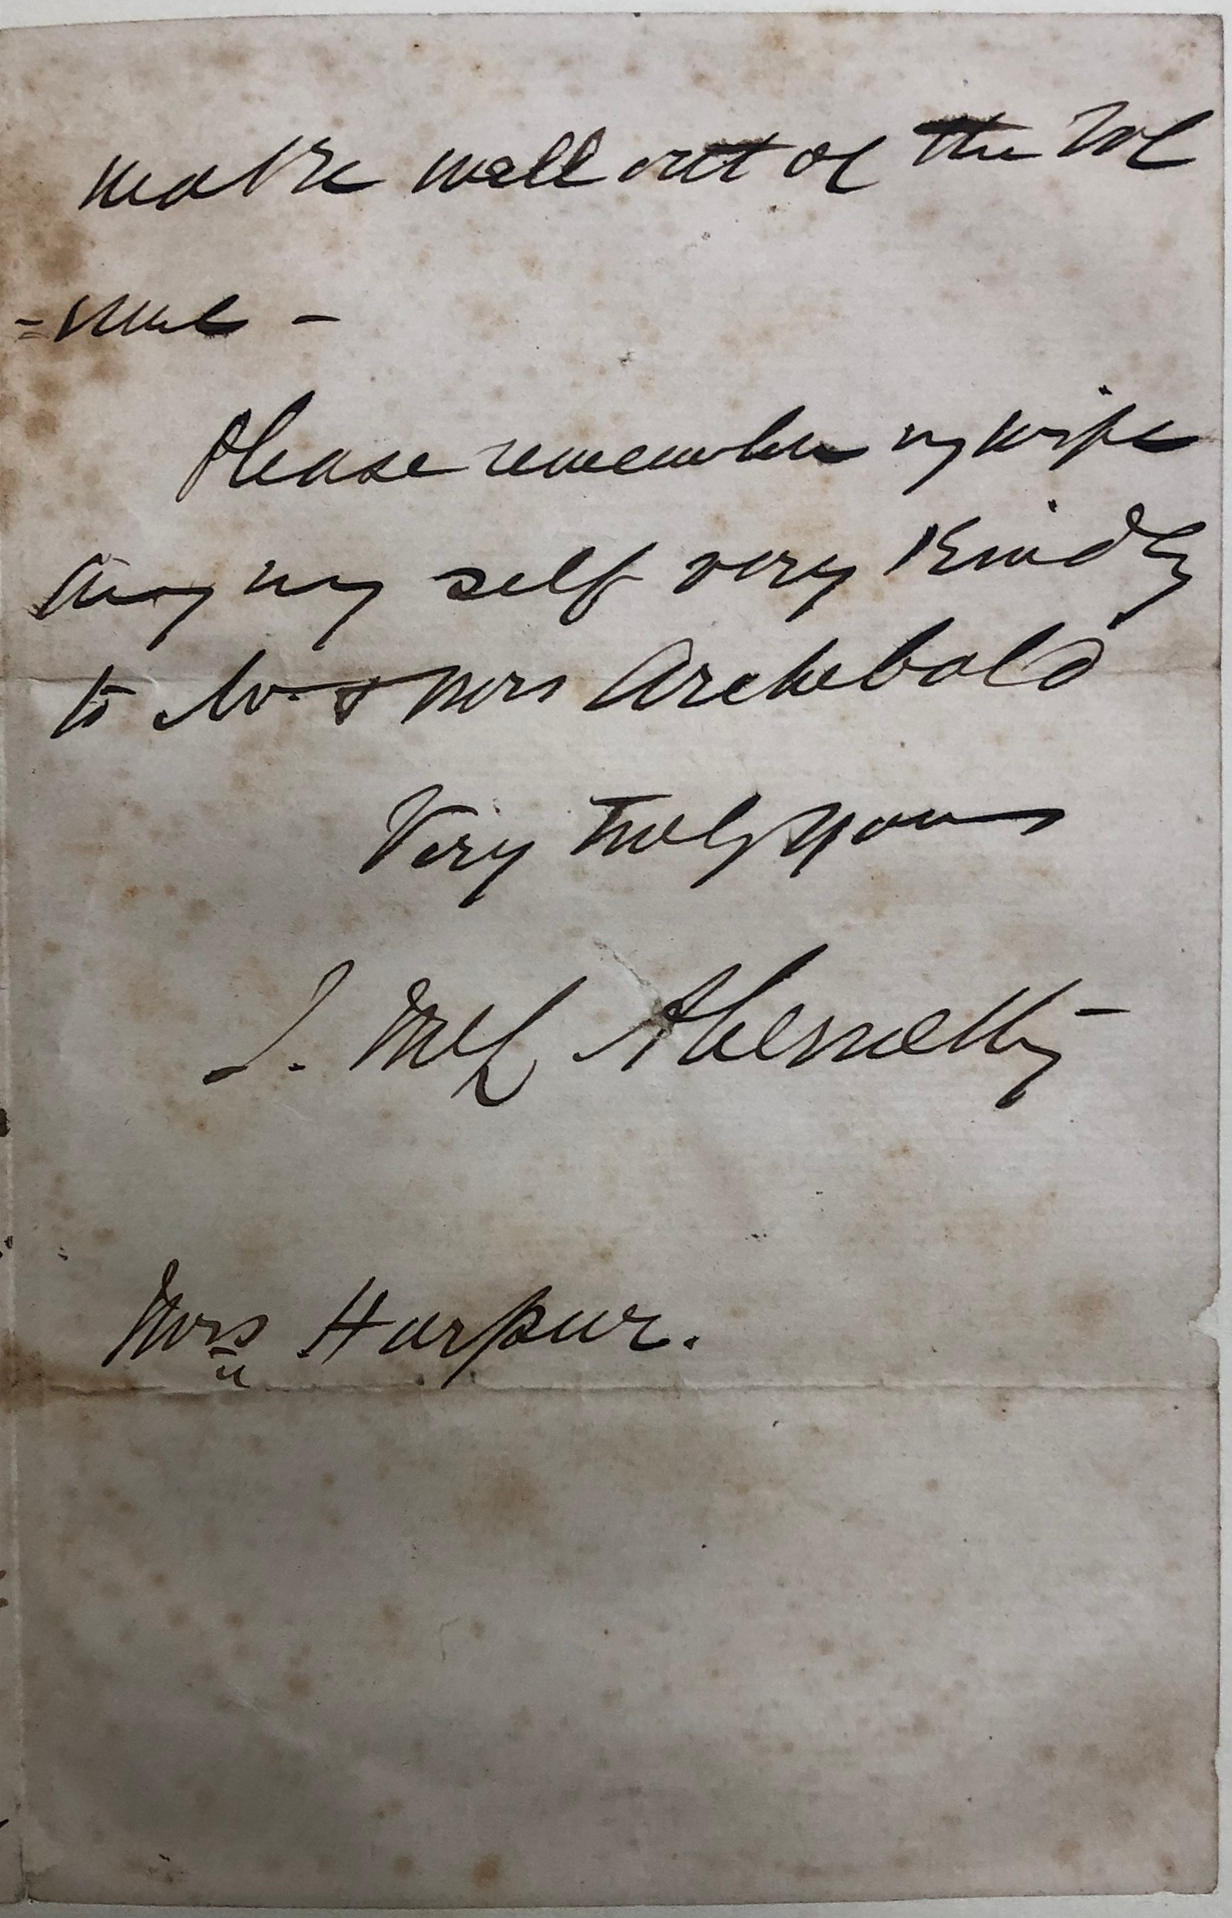 make well out of the Vol
=ume -
Please remember my wife
any my self very Kindly
to Mr. & Mrs Archebald
Very truly yours
J. McL Abernethy
Mrs Harpur.